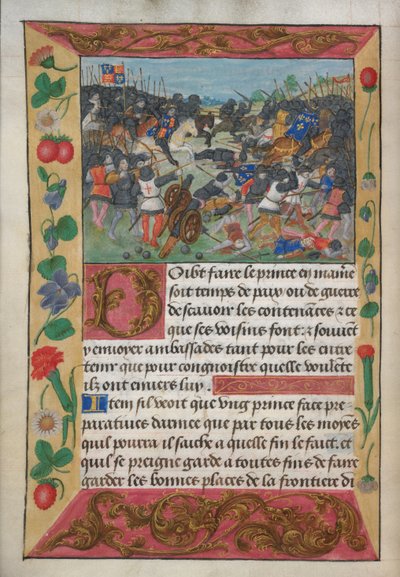 Doibt faire le prince en maĩe
soit temps de paix ou de guerre
de scauoir les contenãces et ce
que ses voisins font: et souuẽt
y enuoyer ambassades tant pour les entre
tenir que pour congnoistre quelle voulete
ilz ont enuers luy.
Item sil veoit que vng prince face pre
paratiues darmee que par tous les moyẽs
quil pourra il saiche a quelle fin le faict. et
quil se preigne garde a toutes fins de faire
garder les bonnes places de la frontiere di